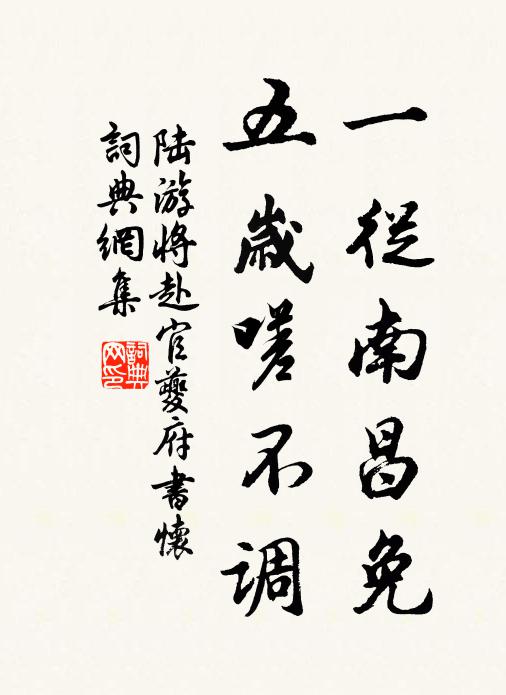 一從南昌免
五歲嗟不调
陸游將赴官夔府書懷
詞典網集
詞典网印